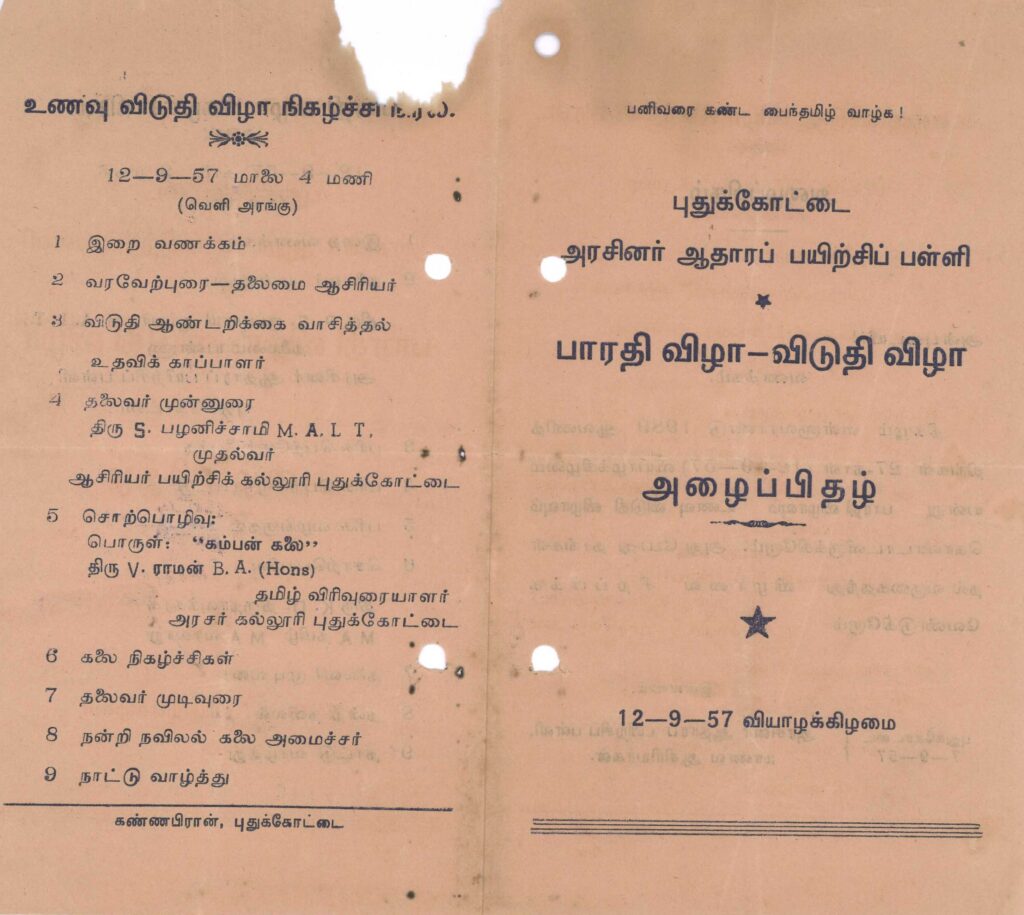 உணவு விடுதி விழா
12—9—57 மாலை 4 மணி
(வெளி அரங்கு)
1 இறை வணக்கம்
2 வரவேற்புரை—தலைமை ஆசிரியர்
3 விடுதி ஆண்டறிக்கை வாசித்தல்
உதவிக் காப்பாளர்
4 தலைவர் முன்னுரை
திரு S. பழனிச்சாமி M. A. L T,
முதல்வர்
ஆசிரியர் பயிற்சிக் கல்லூரி புதுக்கோட்டை
5 சொற்பொழிவு:
பொருள்: “கம்பன் கலை”
திரு V. ராமன் B. A. (Hons)
தமிழ் விரிவுரையாளர்
அரசர் கல்லூரி புதுக்கோட்டை
6 கலை நிகழ்ச்சிகள்
7 தலைவர் முடிவுரை
8 நன்றி நவிலல் கலை அமைச்சர்
9 நாட்டு வாழ்த்து
கண்ணபிரான், புதுக்கோட்டை
பனிவரை கண்ட பைந்தமிழ் வாழ்க !
புதுக்கோட்டை
அரசினர் ஆதாரப் பயிற்சிப் பள்ளி
பாரதி விழா—விடுதி விழா
அழைப்பிதழ்
12—9—57 வியாழக்கிழமை